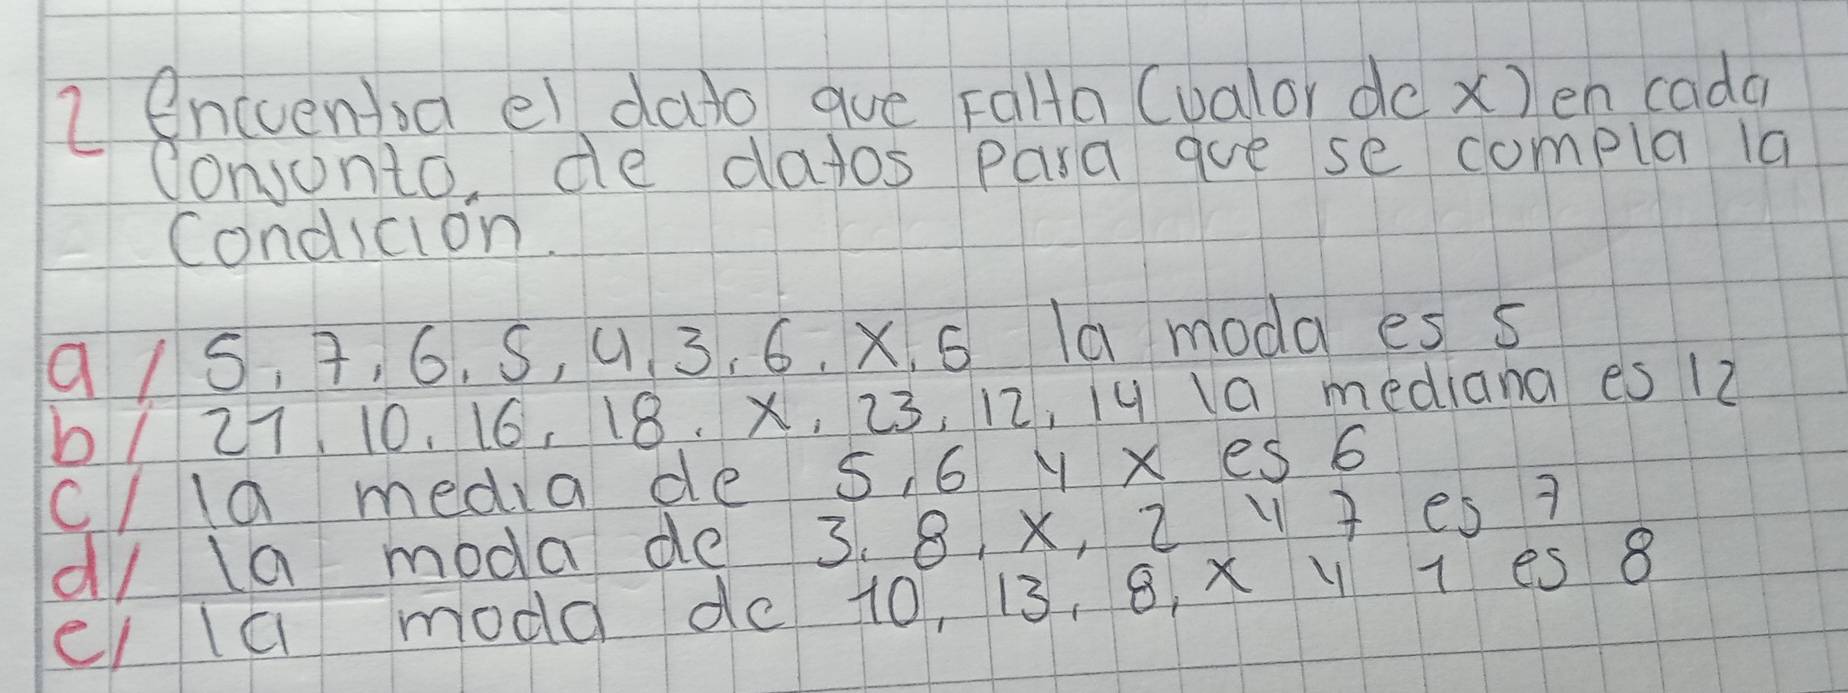 2 Encuentra el dato que falta (valor de x) en cada
Conjunto. de datos para que se compla la
Condición.
a/ 5, 7, 6, 5, 4, 3, 6, x, 5 la moda es 5
b/ 21, 10, 16, 18, x, 23, 12, 14 la mediana es 12
c/ la media de 5, 6 y x es 6
d/ la moda de 3, 8, x, 2 y 7 es 7
e/ la moda de 10, 13, 8, x y 1 es 8